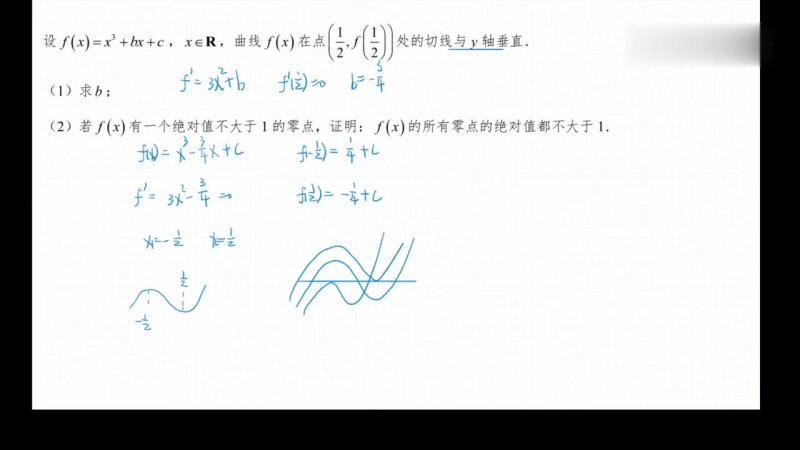 设 f(x)=x³+bx+c，x∈R，曲线 f(x) 在点(1/2, f(1/2))处的切线与 y 轴垂直.
(1) 求 b；
f'=3x²+b f'(1/2)=0 b=-3/4
(2) 若 f(x) 有一个绝对值不大于 1 的零点，证明：f(x) 的所有零点的绝对值都不大于 1.
f(x)=x³-3/4x+c f(-1/2)=1/4+c
f'=3x²-3/4=0 f(1/2)=-1/4+c
x₁=-1/2 x₂=1/2
1/2
-1/2